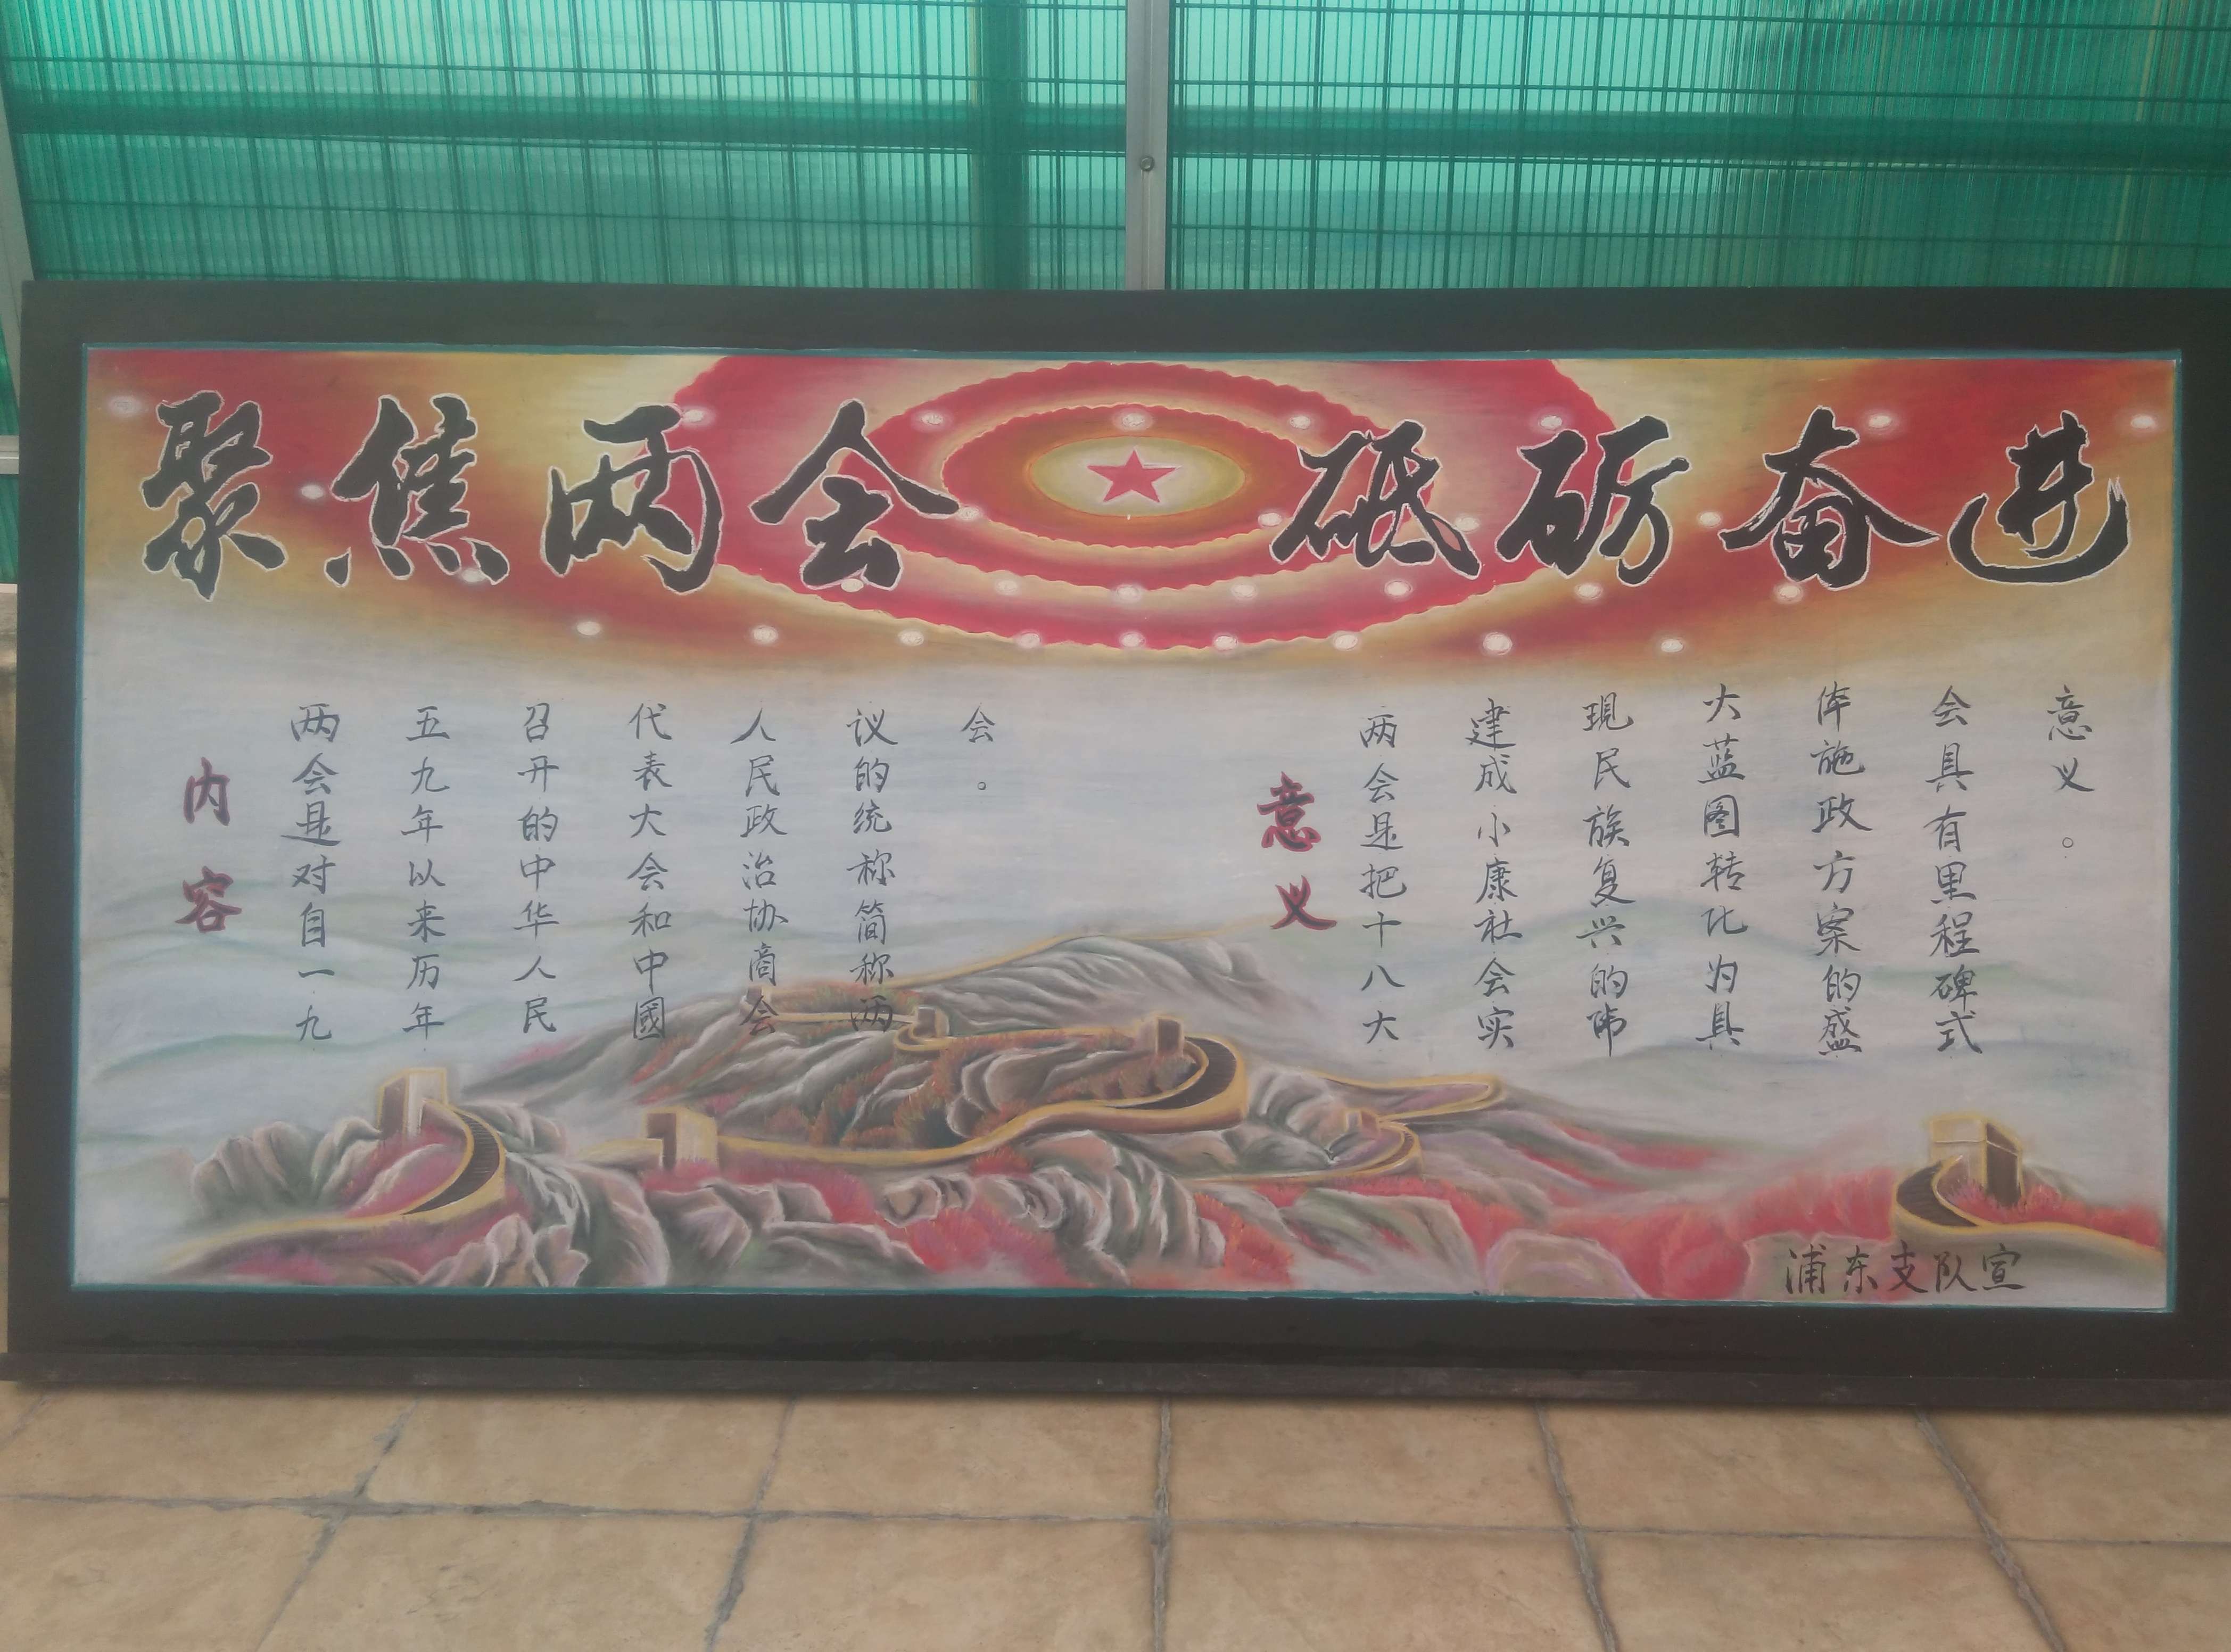 聚焦两会 砥砺奋进
内容
两会是对自一九
五九年以来历年
召开的中华人民
代表大会和中國
人民政治协商会
议的统称简称两
会。
意义
两会是把十八大
建成小康社会实
現民族复兴的伟
大蓝图转化为具
体施政方案的盛
会具有里程碑式
意义。
浦东支队宣